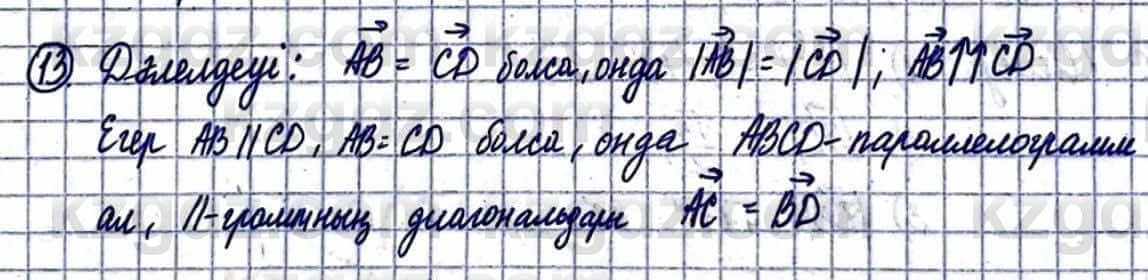 13. Дәлелдеуі: AB = CD болса, онда |AB| = |CD|; AB↑↑CD
Егер AB || CD, AB = CD болса, онда ABCD - параллелограмм
ал, ||-грамның диагональдары AC = BD